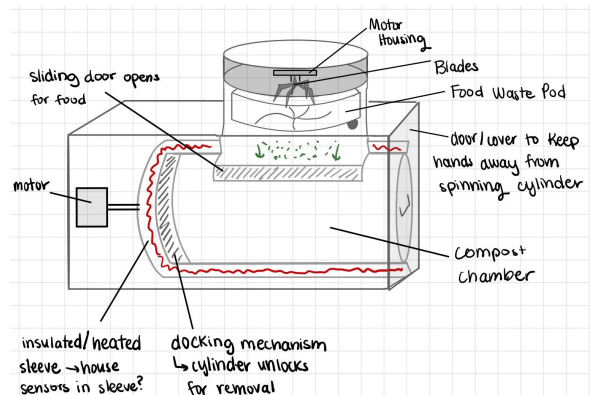 Motor
Housing
Blades
Food Waste Pod
sliding door opens
for food
door/cover to keep
hands away from
spinning cylinder
motor
compost
chamber
insulated/heated
sleeve → house
sensors in sleeve?
docking mechanism
↳ cylinder unlocks
for removal